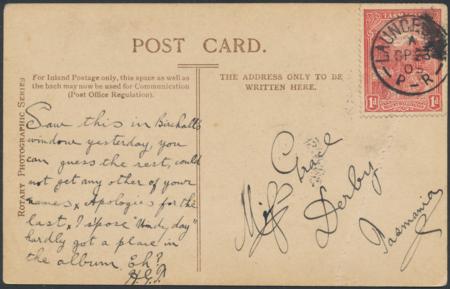 POST CARD.
For Inland Postage only, this space as well as
the back may now be used for Communication
(Post Office Regulation).
THE ADDRESS ONLY TO BE
WRITTEN HERE.
ROTARY PHOTOGRAPHIC SERIES
Saw this in Birchall's
window yesterday, you
can guess the rest, could
not get any other of your
names x Apologies for the
last, I spose "day"
hardly got a place in
the album. Eh?
LAUNCES
A
SP
05
P-R
TAS
1d 1d
Miss Grace
Derby
Tasmania